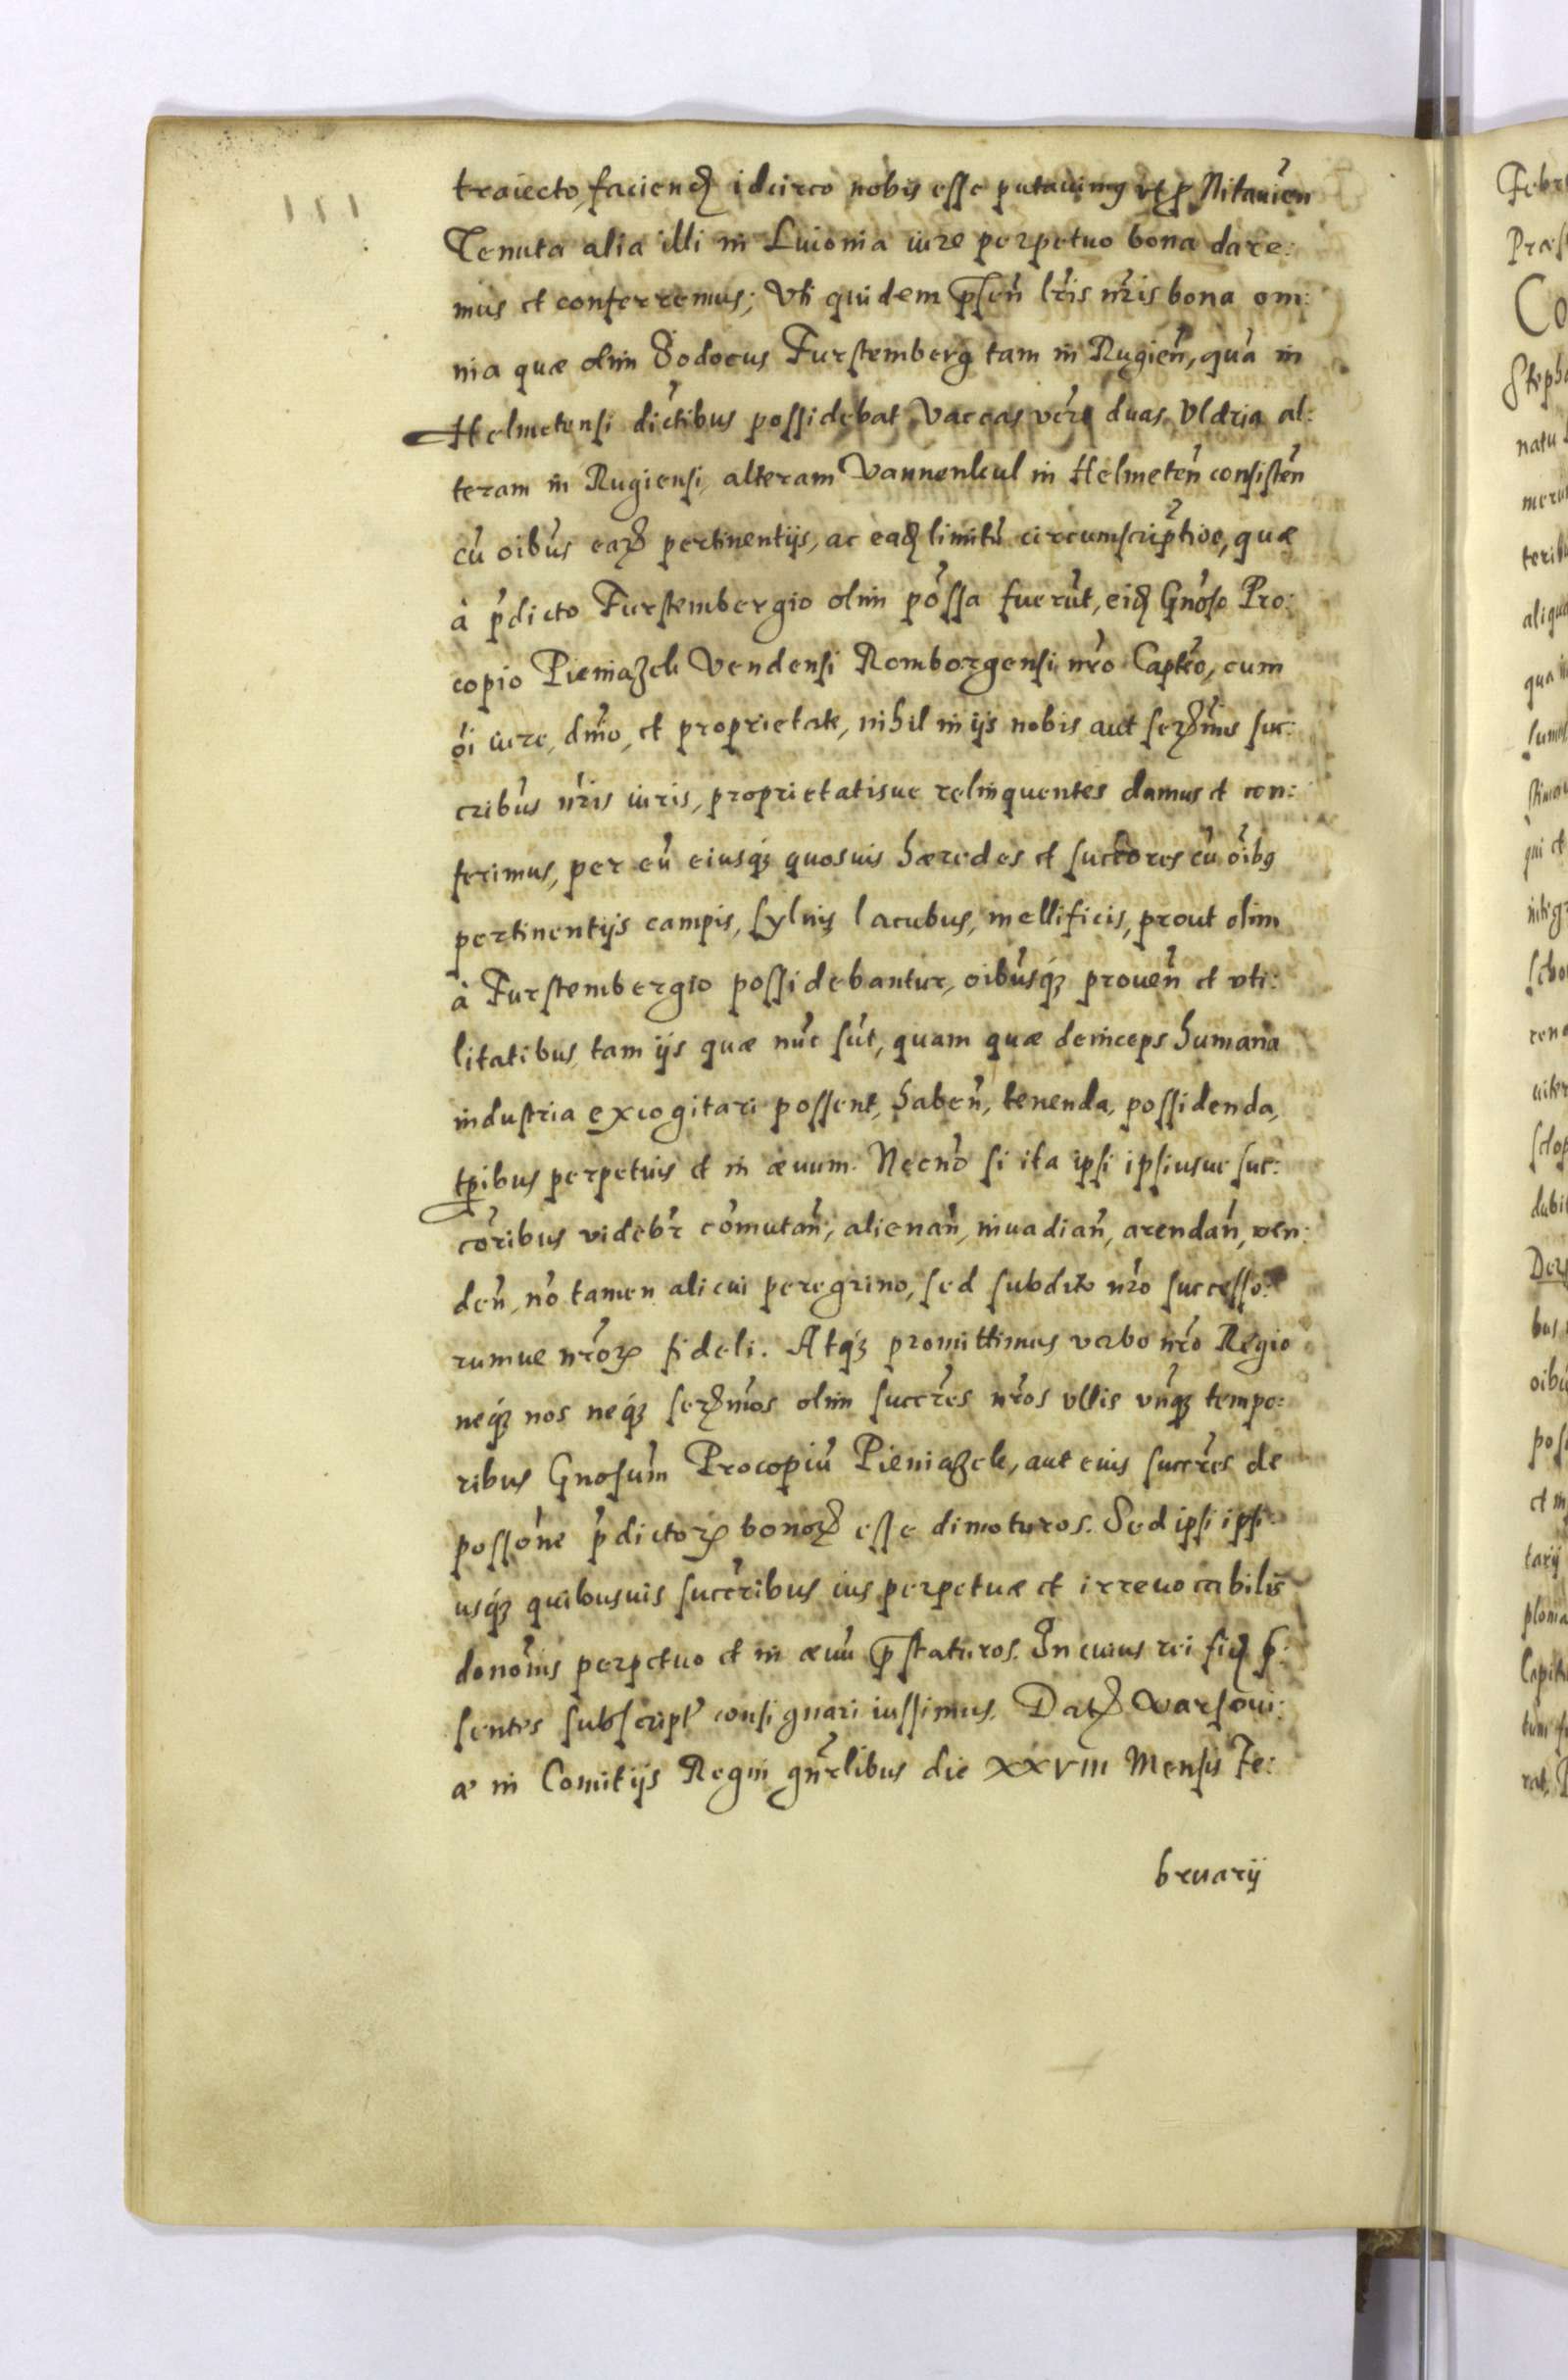 111
traiecto, faciend idcirco nobis esse putauimus vt p Nitauien
Tenuta alia illi in Liuonia iure perpetuo bona dare:
mus et conferremus; Vti quidem psen lris nris bona om:
nia quæ olim Jodocus Furstemberg tam in Rugien, qua in
Helmetensi dictibus possidebat Vaccas vero duas, Vldria al:
teram in Rugiensi, alteram Vannenkul in Helmeten consisten
cu oibus earz pertinentijs, ac ead limitu circumscriptioe, quæ
à pdicto Furstembergio olim possa fuerut, eid Gnoso Pro:
copio Pieniazek Vendensi Romborgensi nro Capteo, cum
oi iure, dmio, et proprietate, nihil in ijs nobis aut serzmis suc:
cribus nris iuris, proprietatisue relinquentes damus et con:
ferimus, per eu eiusq3 quosuis hæredes et succores cu oibus
pertinentijs campis, syluis lacubus, mellificis, prout olim
à Furstembergio possidebantur, oibusq3 prouen et vti:
litatibus, tam ijs quæ nuc sut, quam quæ deinceps humana
industria excogitari possent, haben, tenenda, possidenda,
tpibus perpetuis et in æuum. Necno si ita ipsi ipsiusue suc:
coribus videbr comutan, alienan, inuadian, arendan, ven:
den, no tamen alicui peregrino, sed subdito nro successo:
rumue nrorz fideli. Atq3 promittimus verbo nro Regio
neq3 nos neq3 serzmos olim succres nros vllis vnq3 tempo:
ribus Gnosum Procopiu Pieniazek, aut eius succres de
possone pdictorz bonorz esse dimoturos. Sed ipsi ipsi:
usq3 quibusuis succribus ius perpetuæ et irreuocabilis
donomis perpetuo et in æuu pstaturos. In cuius rei fid p:
sentes subscript consignari iussimus. Datz Varsoui:
æ in Comitijs Regni gnrlibus die XXVIII Mensis Fe:
bruarij